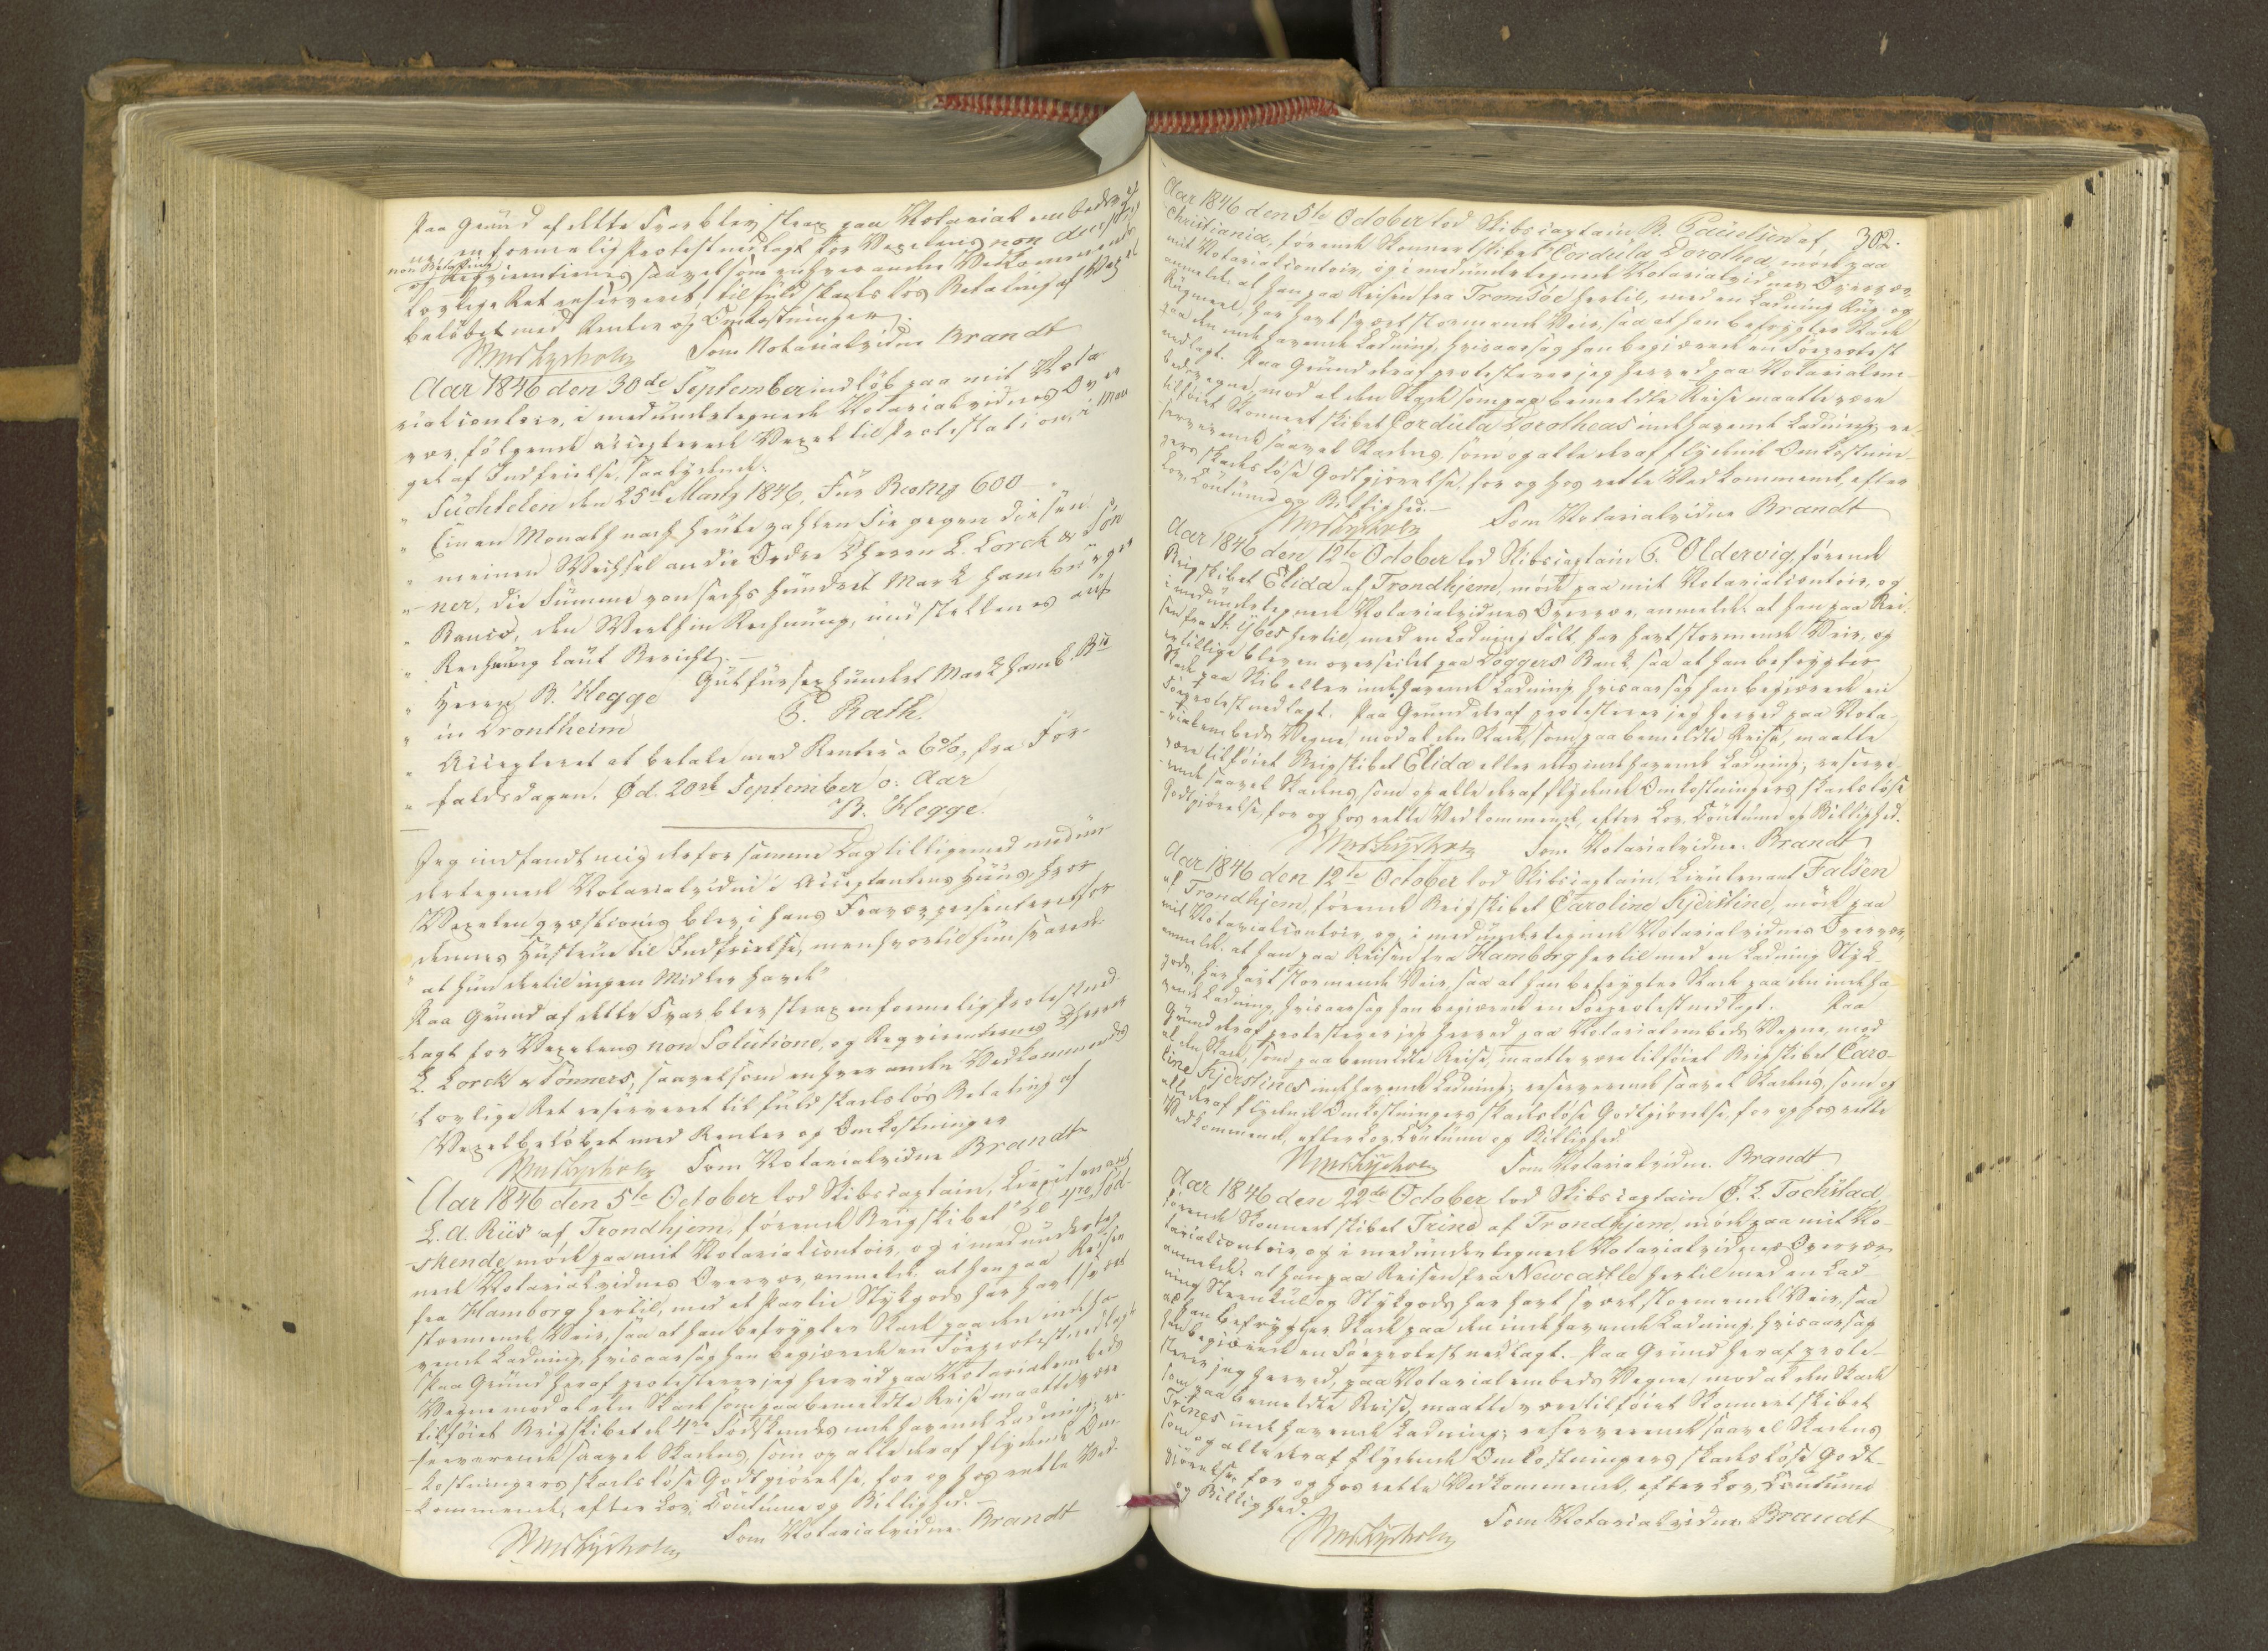 Paa Grund af dette Svar blev strax paa Notarialembedets
en formelig Protest nedlagt for Vexelens non
non Betaling
og Reqvirenternes saavelsom enhver anden Vedkommendes
lovlige Ret reserveret til fuld skadeslös Betaling af Vexel
belöbet med Renter og Omkostninger.
Som Notarialvidne Brandt
Aar 1846 den 30de September indlöb paa mit Nota
rialcontoir, i medundertegnede Notarialvidnes Over
vær, fölgende accepterede Vexel til Protestation i Man
gel af Indfrielse, saalydende:
" Süchtelen den 25st Martz 1846. Für Bcomk 600
" Einen Monath nach heute zahlen Sie gegen diesen
" meinen Wechsel an die Ordre Dherrn L. Lorck & Sön
" ner, die Summe von sechs hundert Mark Hamburger
" Banco, den Werth in Rechnung, und stellen es auf
" Rechnung laut Bericht.
" Herrn B. Hegge Gut für sex hundert Mark Hamb. Bco
" in Drontheim P. Rath.
" Accepteret at betale med Renter a 6%, fra For-
" faldsdagen. Ød. 20de September o: Aar
B. Hegge.
Jeg indfandt mig derfor samme Dag tilligemed medun-
dertegnede Notarialvidne i Acceptantens Huus, hvor
Vexelen qvæstionis blev i hans Fravær presenteret for
dennes Hustrue til Indfrielse, men hvortil hun svarede:
" at hun dertil ingen Midler havde"
Paa Grund af dette Svar blev strax en formelig Protest ned-
lagt for Vexelens non Solutione, og Reqvirenternes Dherrer
L. Lorck & Sönners, saavelsom enhver anden Vedkommendes
lovlige Ret reserveret til fuld skadeslös Betaling af
Vexelbelöbet med Renter og Omkostninger
Som Notarialvidne Brandt
Aar 1846 den 5te October lod Skibscaptain, Lieutenant
L. A. Riis af Trondhjem, förende Brigskibet De 4re Söd-
skende, möde paa mit Notarialcontoir, og i medunderteg
nede Notarialvidnes Overvær anmelde: at han paa Reisen
fra Hamborg hertil, med et Partie Stykgods har havt svær
stormende Veir, saa at han befrygter Skade paa den indeha-
vende Ladning, hvisaarsag han begjærede en Söeprotest nedlagt
Paa Grund heraf protesterer jeg herved paa Notarialembeds
Vegne mod al den Skade som paa bemeldte Reise maatte være
tilföiet Brigskibet de 4re Södskendes indehavende Ladning; re-
serverende saavel Skadens, som og alle deraf flydende Om-
kostningers skadeslöse Godtgjörelse, for og hos rette Ved-
kommende, efter Lov, Coutume og Billighed.
Som Notarialvidne Brandt
302.
Aar 1846 den 5te October lod Skibscaptain R. Pauelsen af
Christiania, förende Skonnertskibet Cordula Dorothea, möde paa
mit Notarialcontoir, og i medundertegnede Notarialvidnes Overvær
anmelde: at han paa Reisen fra Tromsöe hertil, med en Ladning Rug og
Rugmeel, har havt svært stormende Veir, saa at han befrygter Skade
paa den indehavende Ladning, hvisaarsag han begjærede en Söeprotest
nedlagt. Paa Grund deraf protesterer jeg herved paa Notarialem-
beds Vegne, mod al den Skade som paa bemeldte Reise maatte være
tilföiet Skonnertskibet Cordula Dorotheas indehavende Ladning; re-
serverende saavel Skadens, som og alle deraf flydende Omkostnin-
gers skadeslöse Godtgjörelse, for og hos rette Vedkommende, efter
Lov, Coutume og Billighed.
Som Notarialvidne Brandt
Aar 1846 den 12te October lod Skibscaptain P. Oldervig, förende
Brigskibet Elida af Trondhjem, möde paa mit Notarialcontoir, og
i medundertegnede Notarialvidnes Overvær, anmelde: at han paa Rei-
sen fra St. Ybes hertil, med en Ladning Salt, har havt stormende Veir, og
er tillige bleven overseilet paa Doggers Bank, saa at han befrygter
Skade paa Skib eller indehavende Ladning, hvisaarsag han begjærede en
Söeprotest nedlagt. Paa Grund deraf protesterer jeg herved paa Nota-
rialembeds Vegne, mod al den Skade, som paa bemeldte Reise, maatte
være tilföiet Brigskibet Elida eller dets indehavende Ladning; reserve-
rende saavel Skadens, som og alle deraf flydende Omkostningers skadeslöse
Godtgjörelse, for og hos rette Vedkommende, efter Lov, Coutume og Billighed.
Som Notarialvidne. Brandt
Aar 1846 den 12te October lod Skibscaptain, Lieutenant Falsen
af Trondhjem, förende Brigskibet Caroline Kjerstine, möde paa
mit Notarialcontoir, og i medundertegnede Notarialvidnes Overvær,
anmelde: at han paa Reisen fra Hamborg hertil med en Ladning Styk-
gods, har havt stormende Veir, saa at han befrygter Skade paa den indeha-
vende Ladning, hvisaarsag han begjærede en Söeprotest nedlagt. Paa
Grund deraf protesterer jeg herved paa Notarialembeds Vegne, mod
al den Skade, som paa bemeldte Reise, maatte være tilföiet Brigskibet Caro-
line Kjerstines indehavende Ladning; reserverende saavel Skadens, som og
alle deraf flydende Omkostningers skadeslöse Godtgjörelse, for og hos rette
Vedkommende, efter Lov, Coutume og Billighed
Som Notarialvidne. Brandt
Aar 1846 den 22de October lod Skibscaptain O. L. Tochstad,
förende Skonnertskibet Trine af Trondhjem, möde paa mit No-
tarialcontoir, og i medundertegnede Notarialvidnes Overvær
anmelde: at han paa Reisen fra Newcastle hertil med en Lad-
ning Steenkul og Stykgods har havt svært stormende Veir, saa
at han befrygter Skade paa den indehavende Ladning, hvisaarsag
han begjærede en Söeprotest nedlagt. Paa Grund heraf prote-
sterer jeg herved, paa Notarialembeds Vegne, mod al den Skade
som paa bemeldte Reise, maatte være tilföiet Skonnertskibet
Trines indehavende Ladning; reserverende saavel Skadens
som og alle deraf flydende Omkostningers skadeslöse Godt-
gjörelse, for og hos rette Vedkommende, efter Lov, Coutume
og Billighed.
Som Notarialvidne. Brandt